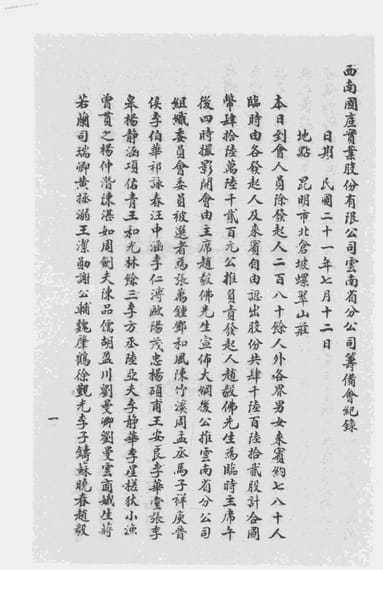 西南國產實業股份有限公司雲南省分公司籌備會紀錄
日期　民國二十一年七月十二日
地點　昆明市北倉坡螺翠山莊
本日到會人員除發起人二百八十餘人外各界男女來賓約七八十人
臨時由各發起人及來賓自由認出股份共肆千陸百陸拾貳股計合國
幣肆拾陸萬陸千貳百元公推負責發起人趙敬佛先生為臨時主席午
後四時攝影開會由主席趙敬佛先生宣佈大綱後公推雲南省分公司
組織委員會委員被選者為張萬鍾鄧和風陳竹溪周孟丞馬子祥庾晉
侯李伯華祁詠春汪中涵李仁溥歐陽茂忠楊碩甫王安民李華堂張季
皋楊靜涵項佑青王和光林餘三李方丞陸亞夫李靜華李星槎狄小漁
曾貫之楊仲潛陳湛如周劍夫陳品儒胡盈川劉曼卿劉曼雲商娀生蔣
若蘭司瑞卿黃拯溺王潔勛謝公輔魏肇鶴徐觀光李子鑄蘇曉春趙毅
一